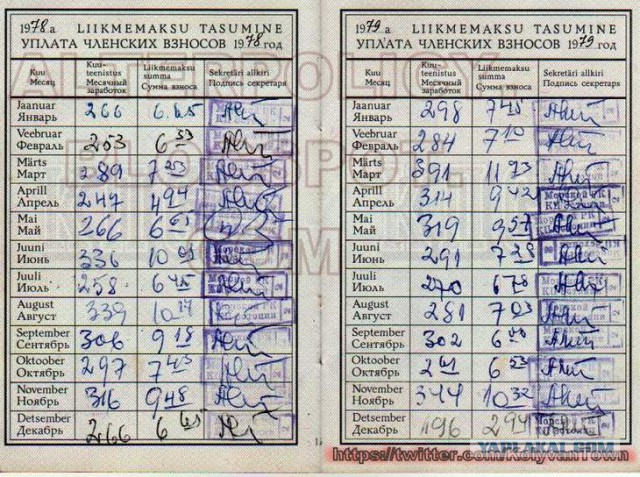 1978 a LIIKMEMAKSU TASUMINE
УПЛАТА ЧЛЕНСКИХ ВЗНОСОВ 1978 год
Kuu Kuu-teenistus Liikmemaksu summa Sekretäri allkiri
Месяц Месячный заработок Сумма взноса Подпись секретаря
Jaanuar
Январь 266 6.65
Veebruar
Февраль 253 6 33
Märts
Март 289 7 23
Aprill
Апрель 247 4 94
Mai
Май 266 6 65
Juuni
Июнь 336 10
Juuli
Июль 258 6 45
August
Август 339 10 17
September
Сентябрь 306 9 18
Oktoober
Октябрь 297 7 43
November
Ноябрь 316 9 48
Detsember
Декабрь 266 6 65
1979 a LIIKMEMAKSU TASUMINE
УПЛАТА ЧЛЕНСКИХ ВЗНОСОВ 1979 год
Kuu Kuu-teenistus Liikmemaksu summa Sekretäri allkiri
Месяц Месячный заработок Сумма взноса Подпись секретаря
Jaanuar
Январь 298 7 45
Veebruar
Февраль 284 7 10
Märts
Март 391 11 73
Aprill
Апрель 314 9 42
Mai
Май 319 9 57
Juuni
Июнь 291 7
Juuli
Июль 270 6 78
August
Август 281 7 03
September
Сентябрь 302 6
Oktoober
Октябрь 261 6 53
November
Ноябрь 344 10 32
Detsember
Декабрь 196 2 94
https://twitter.com/KolyvanTown